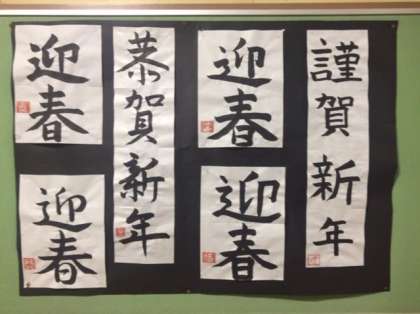 謹賀新年
迎春
迎春
恭賀新年
迎春
迎春